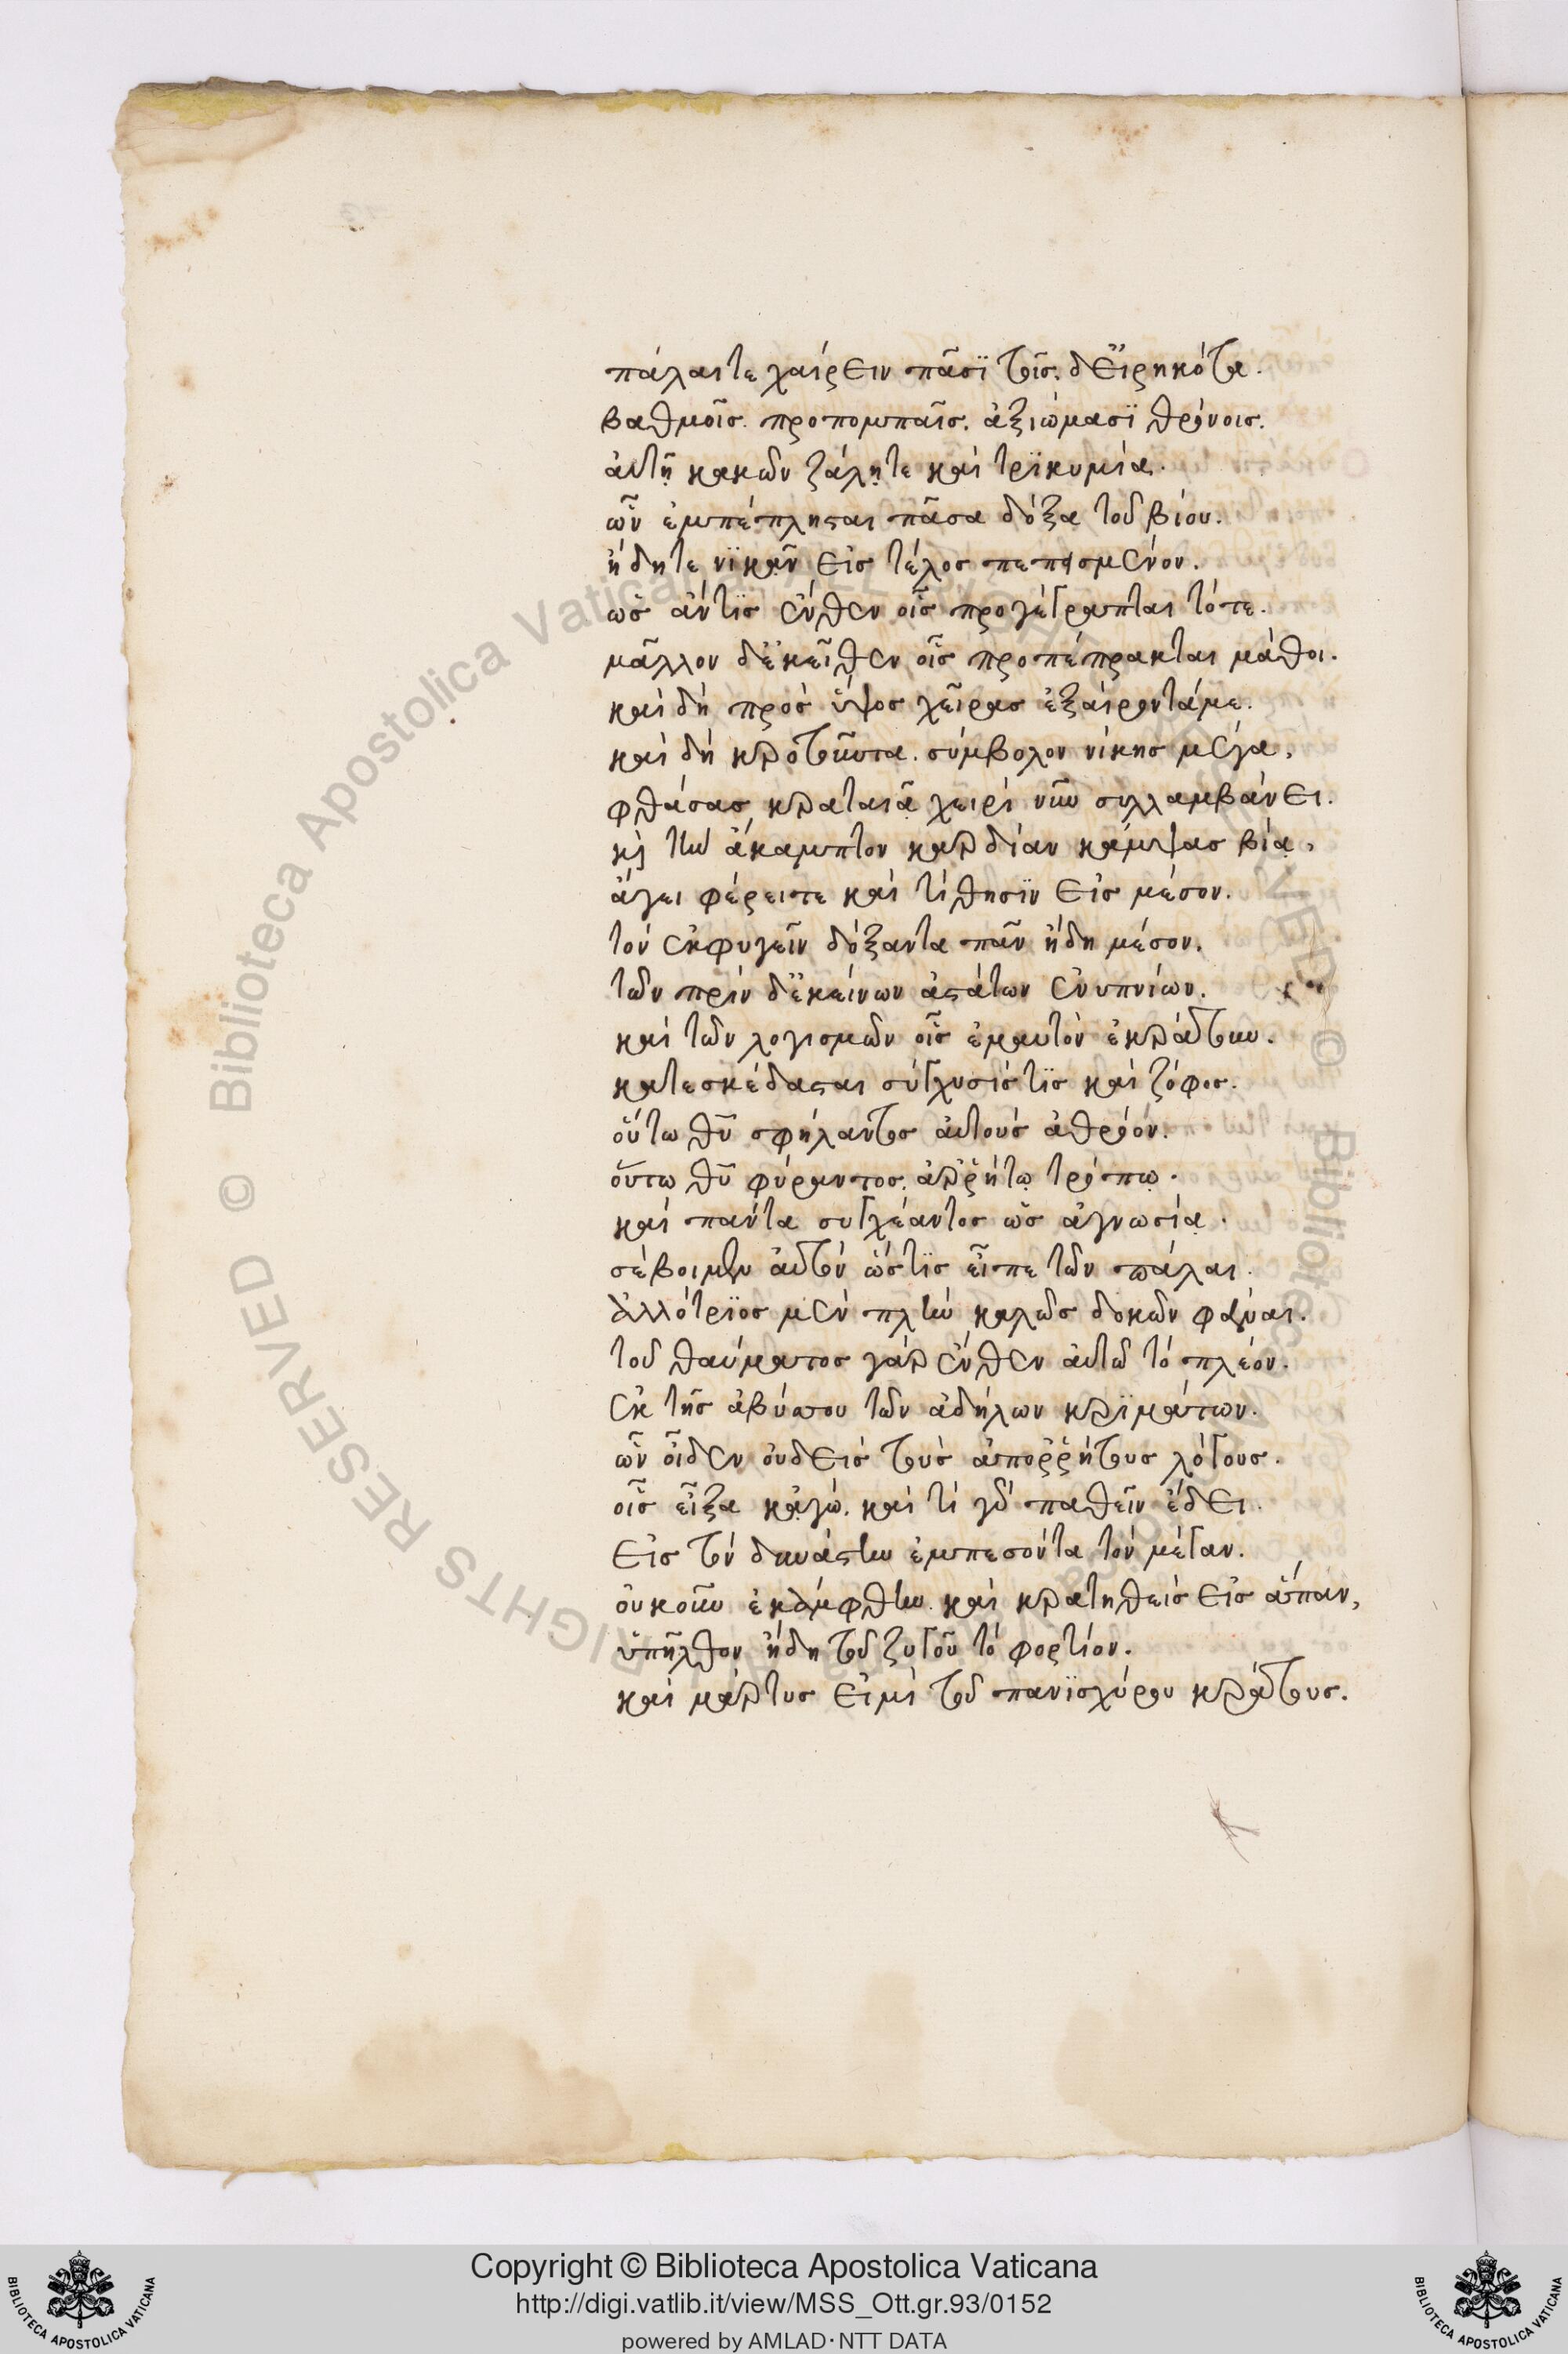 πάλαι τε χαίρειν πᾶσϊ τοῖς. δ' εἰρηκότα.
βαθμοῖς. προπομπαῖς. ἀξιώμασϊ θρόνοις.
αὐτῆ κακῶν ζάλη τε καὶ τρϊκυμία.
ὧν ἐμπέπλησται πᾶσα δόξα τοῦ βίου.
ἤδη τε νϊκᾶν εἰς τέλος πεπεισμένον.
ὡς ἄν τϊς ἔνθεν οἷς προγέγραπται τότε.
μᾶλλον δ' ἐκεῖθεν οἷς προπέπρακται μάθοι.
καὶ δὴ πρὸς ὕψος χεῖρας ἐξαίροντά με.
καὶ δὴ κροτοῦντα. σύμβολον νίκης μέγα,
φθάσας κραταιᾷ χειρὶ νῦν συλλαμβάνει.
καὶ τὴν ἄκαμπτον καρδίαν κάμψας βίᾳ,
ἄγει φέρει τε καὶ τίθησϊν εἰς μέσον.
τὸν ἐκφυγεῖν δόξαντα πᾶν ἤδη μέσον.
τῶν πρὶν δ' ἐκείνων ἀστάτων ἐνυπνίων.
καὶ τῶν λογισμῶν οἷς ἐμαυτὸν ἐκράτουν.
κατεσκέδασται σύγχυσίς τϊς καὶ ζόφος.
οὕτω θυ σφήλαντος αὐτοὺς ἀθρόον.
οὕτω θυ φύραντος. ἀῤῥήτῳ τρόπῳ.
καὶ πάντα συγχέαντος ὡς ἀγνωσίᾳ.
σέβοιμεν αὐτὸν ὥς τϊς εἶπε τῶν πάλαι.
ἀλλότρϊος μὲν πλὴν καλῶς δοκῶν φάναι.
τοῦ θαύματος γὰρ ἔνθεν αὐτῶ τὸ πλέον.
ἐκ τῆς ἀβύσσου τῶν ἀδήλων κρϊμάτων.
ὧν οἶδεν οὐδεὶς τοὺς ἀποῤῥήτους λόγους.
οἷς εἶξα κᾀγώ. καὶ τί γὰρ παθεῖν ἔδει.
εἰς τὸν δυνάστην ἐμπεσόντα τὸν μέγαν.
οὐκοῦν ἐκάμφθην. καὶ κρατηθεὶς εἰς ἅπαν,
ὑπῆλθον ἤδη τοῦ ζυγοῦ τὸ φορτίον.
καὶ μάρτυς εἰμὶ τοῦ πανϊσχύρου κράτους.
Copyright © Biblioteca Apostolica Vaticana
http://digi.vatlib.it/view/MSS_Ott.gr.93/0152
powered by AMLAD·NTT DATA